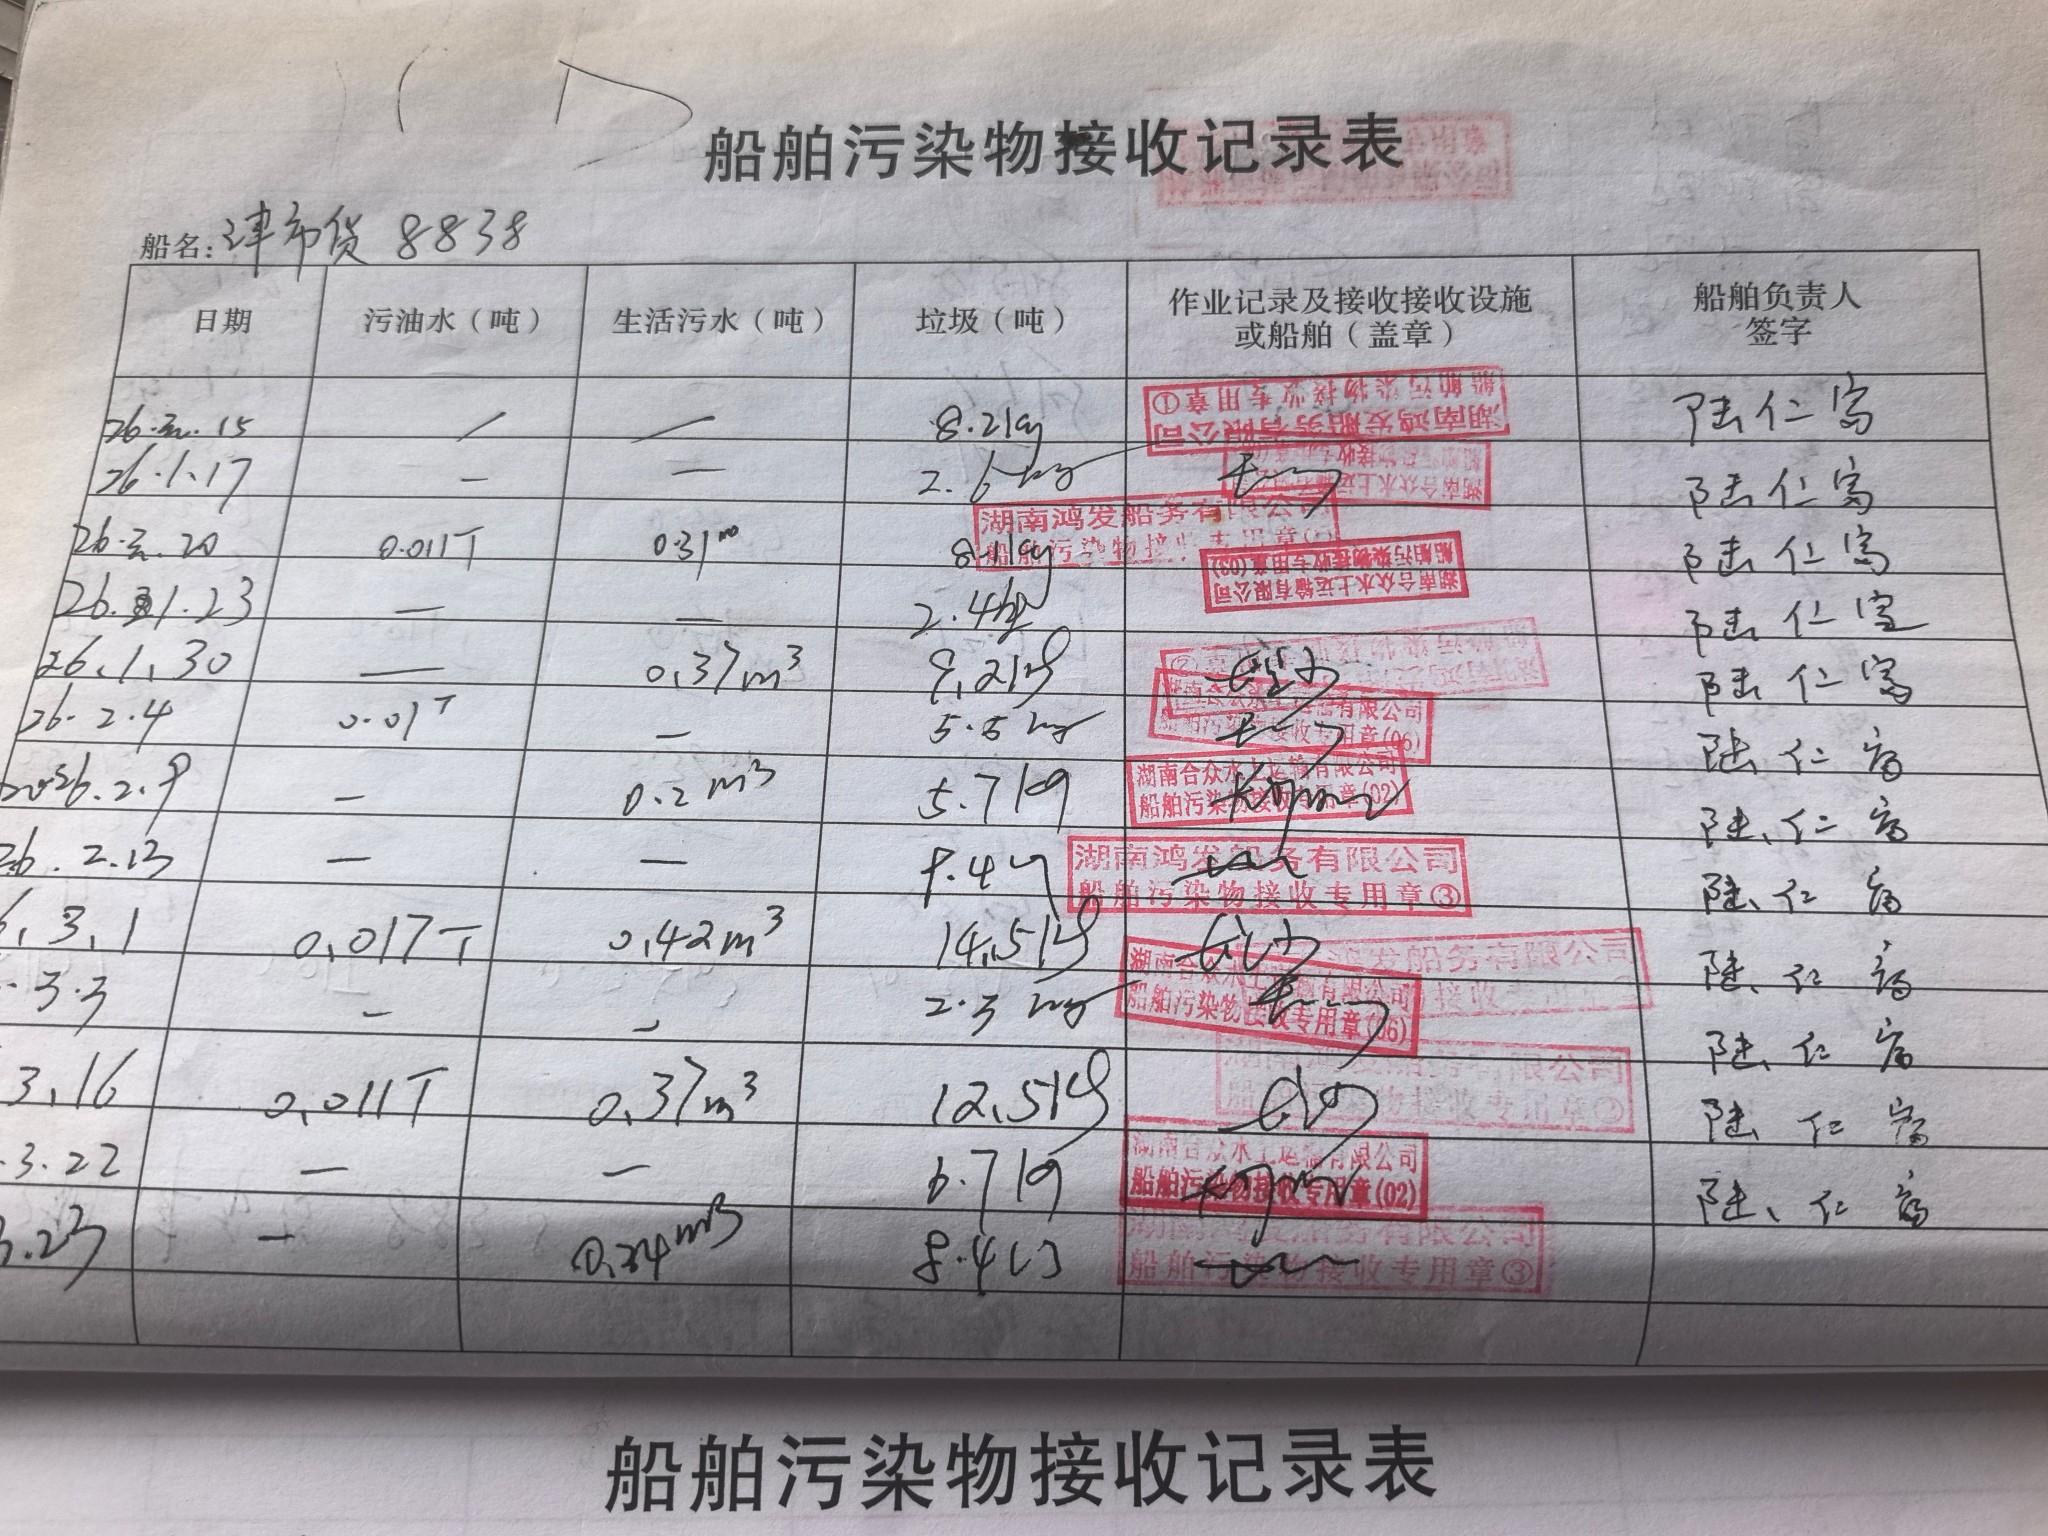 船舶污染物接收记录表
船名: 津市货 8838
日期 污油水（吨） 生活污水（吨） 垃圾（吨） 作业记录及接收接收设施或船舶（盖章） 船舶负责人签字
26. .15 / — 8.2kg 湖南鸿发船务有限公司 船舶污染物接收专用章① 陆仁富
26.1.17 — — 2.6kg 湖南合众水上运输有限公司 陆仁富
26. .20 0.011T 0.31m 8.1kg 湖南鸿发船务有限公司 船舶污染物接收专用章 陆仁富
26. 1.23 — — 2.4kg 湖南合众水上运输有限公司 船舶污染物接收专用章(03) 陆仁富
26.1.30 — 0.37m³ 9.2kg 陆仁富
26.2.4 0.01T — 5.5kg 湖南合众水上运输有限公司 船舶污染物接收专用章(06) 陆仁富
2026.2.9 — 0.2m³ 5.7kg 湖南合众水上运输有限公司 船舶污染物接收专用章(02) 陆仁富
26.2.13 — — 8.4kg 湖南鸿发船务有限公司 船舶污染物接收专用章③ 陆仁富
6.3.1 0.017T 0.42m³ 14.5kg 鸿发船务有限公司 陆仁富
3.3 — — 2.3kg 湖南合众水上运输有限公司 船舶污染物接收专用章(06) 陆仁富
3.16 0.011T 0.37m³ 12.5kg 船务有限公司 陆仁富
.3.22 — — 6.7kg 湖南合众水上运输有限公司 船舶污染物接收专用章(02) 陆仁富
3.23 — 0.24m³ 8.4kg 湖南鸿发船务有限公司 船舶污染物接收专用章③
船舶污染物接收记录表